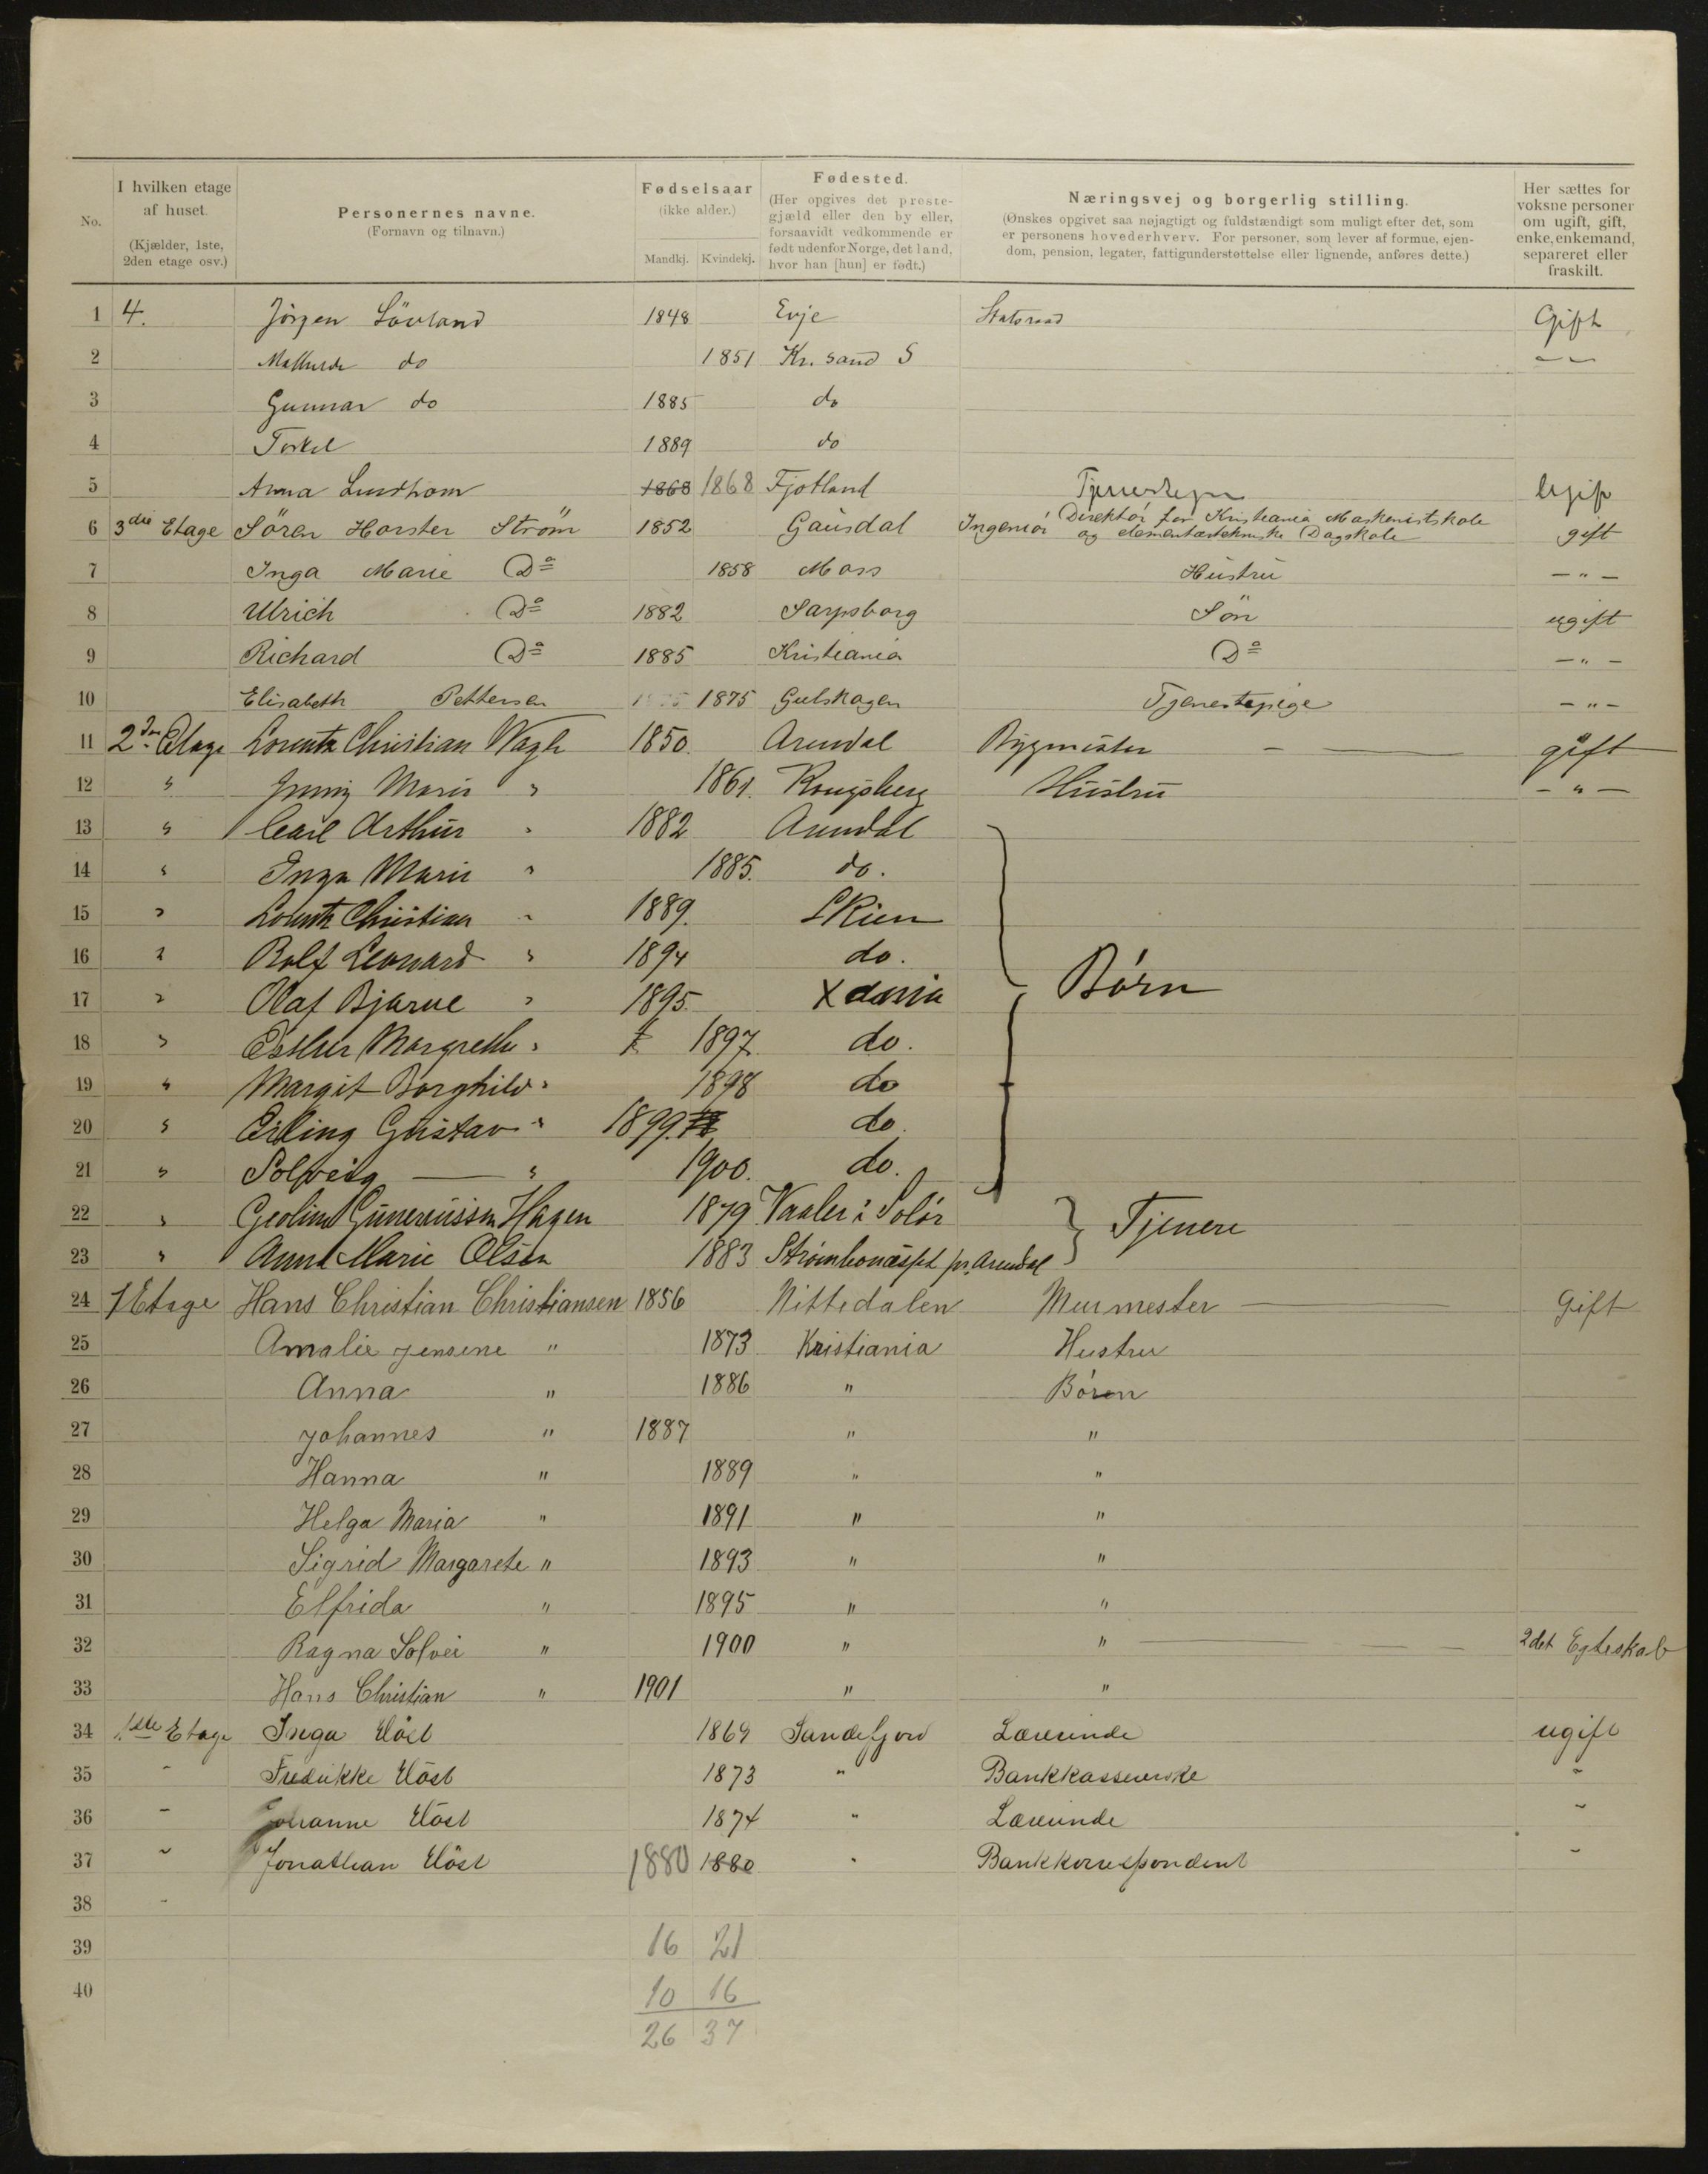 No.
I hvilken etage af huset. (Kjælder, 1ste, 2den etage osv.)
Personernes navne. (Fornavn og tilnavn.)
Fødselsaar (ikke alder.) Mandkj. Kvindekj.
Fødested. (Her opgives det prestegjæld eller den by eller, forsaavidt vedkommende er født udenfor Norge, det land, hvor han [hun] er født.)
Næringsvej og borgerlig stilling. (Ønskes opgivet saa nøjagtigt og fuldstændigt som muligt efter det, som er personens hovederhverv. For personer, som lever af formue, ejendom, pension, legater, fattigunderstøttelse eller lignende, anføres dette.)
Her sættes for voksne personer om ugift, gift, enke, enkemand, separeret eller fraskilt.
1 4. Jörgen Lövland 1848 Evje Statsraad Gift
2 do 1851 Kr.sand S - " -
3 Gunnar do 1885 do
4 Torkel 1889 do
5 Anna 1868 1868 Fjotland Ugift
6 3die Etage Sören Horster Ström 1852 Gausdal Ingeniör Direktör for Kristiania Maskinistskole og elementærtekniske Dagskole gift
7 Inga Marie Do 1858 Moss Hustru - " -
8 Ulrich Do 1882 Sarpsborg Sön ugift
9 Richard Do 1885 Kristiania Do - " -
10 Elisabeth Pettersen 1875 1875 Gulskogen Tjenestepige - " -
11 2den Etage Lorentz Christian Vagle 1850. Arendal Bygmester gift
12 " Jenny Marie " 1861. Kongsberg Hustru - " -
13 " Carl Arthur " 1882 Arendal
14 " Inga Marie " 1885. do.
15 " Lorentz Christian " 1889. Skien
16 " Rolf Leonard " 1894 do.
17 " Olaf Bjarne " 1895. Xdania Børn
18 " Esther Margrethe " 1897. do.
19 " Margit Borghild " 1898 do
20 " Erling Gustav " 1899. do.
21 " Solveig " 1900. do.
22 " Hagen 1879 Vaaler i Solør Tjenere
23 " Anna Marie Olsen 1883 pr. Arendal
24 1 Etage Hans Christian Christiansen 1856 Nittedalen Murmester Gift
25 Amalie Jensine " 1873 Kristiania Hustru
26 Anna " 1886 " Børen
27 Johannes " 1887 " "
28 Hanna " 1889 " "
29 Helga Maria " 1891 " "
30 Sigrid Margarete " 1893 " "
31 Elfrida " 1895 " "
32 Ragna Solvei " 1900 " " 2det Egteskab
33 Hans Christian " 1901 " "
34 1ste Etage Inga Höst 1869 Sandefjord Lærerinde ugift
35 " Fredrikke Höst 1873 " Bankkassererske "
36 " Johanne Höst 1874 " Lærerinde "
37 " Jonathan Höst 1880 1880 " Bankkorrespondent "
38 "
39 16 21
40 10 16
26 37